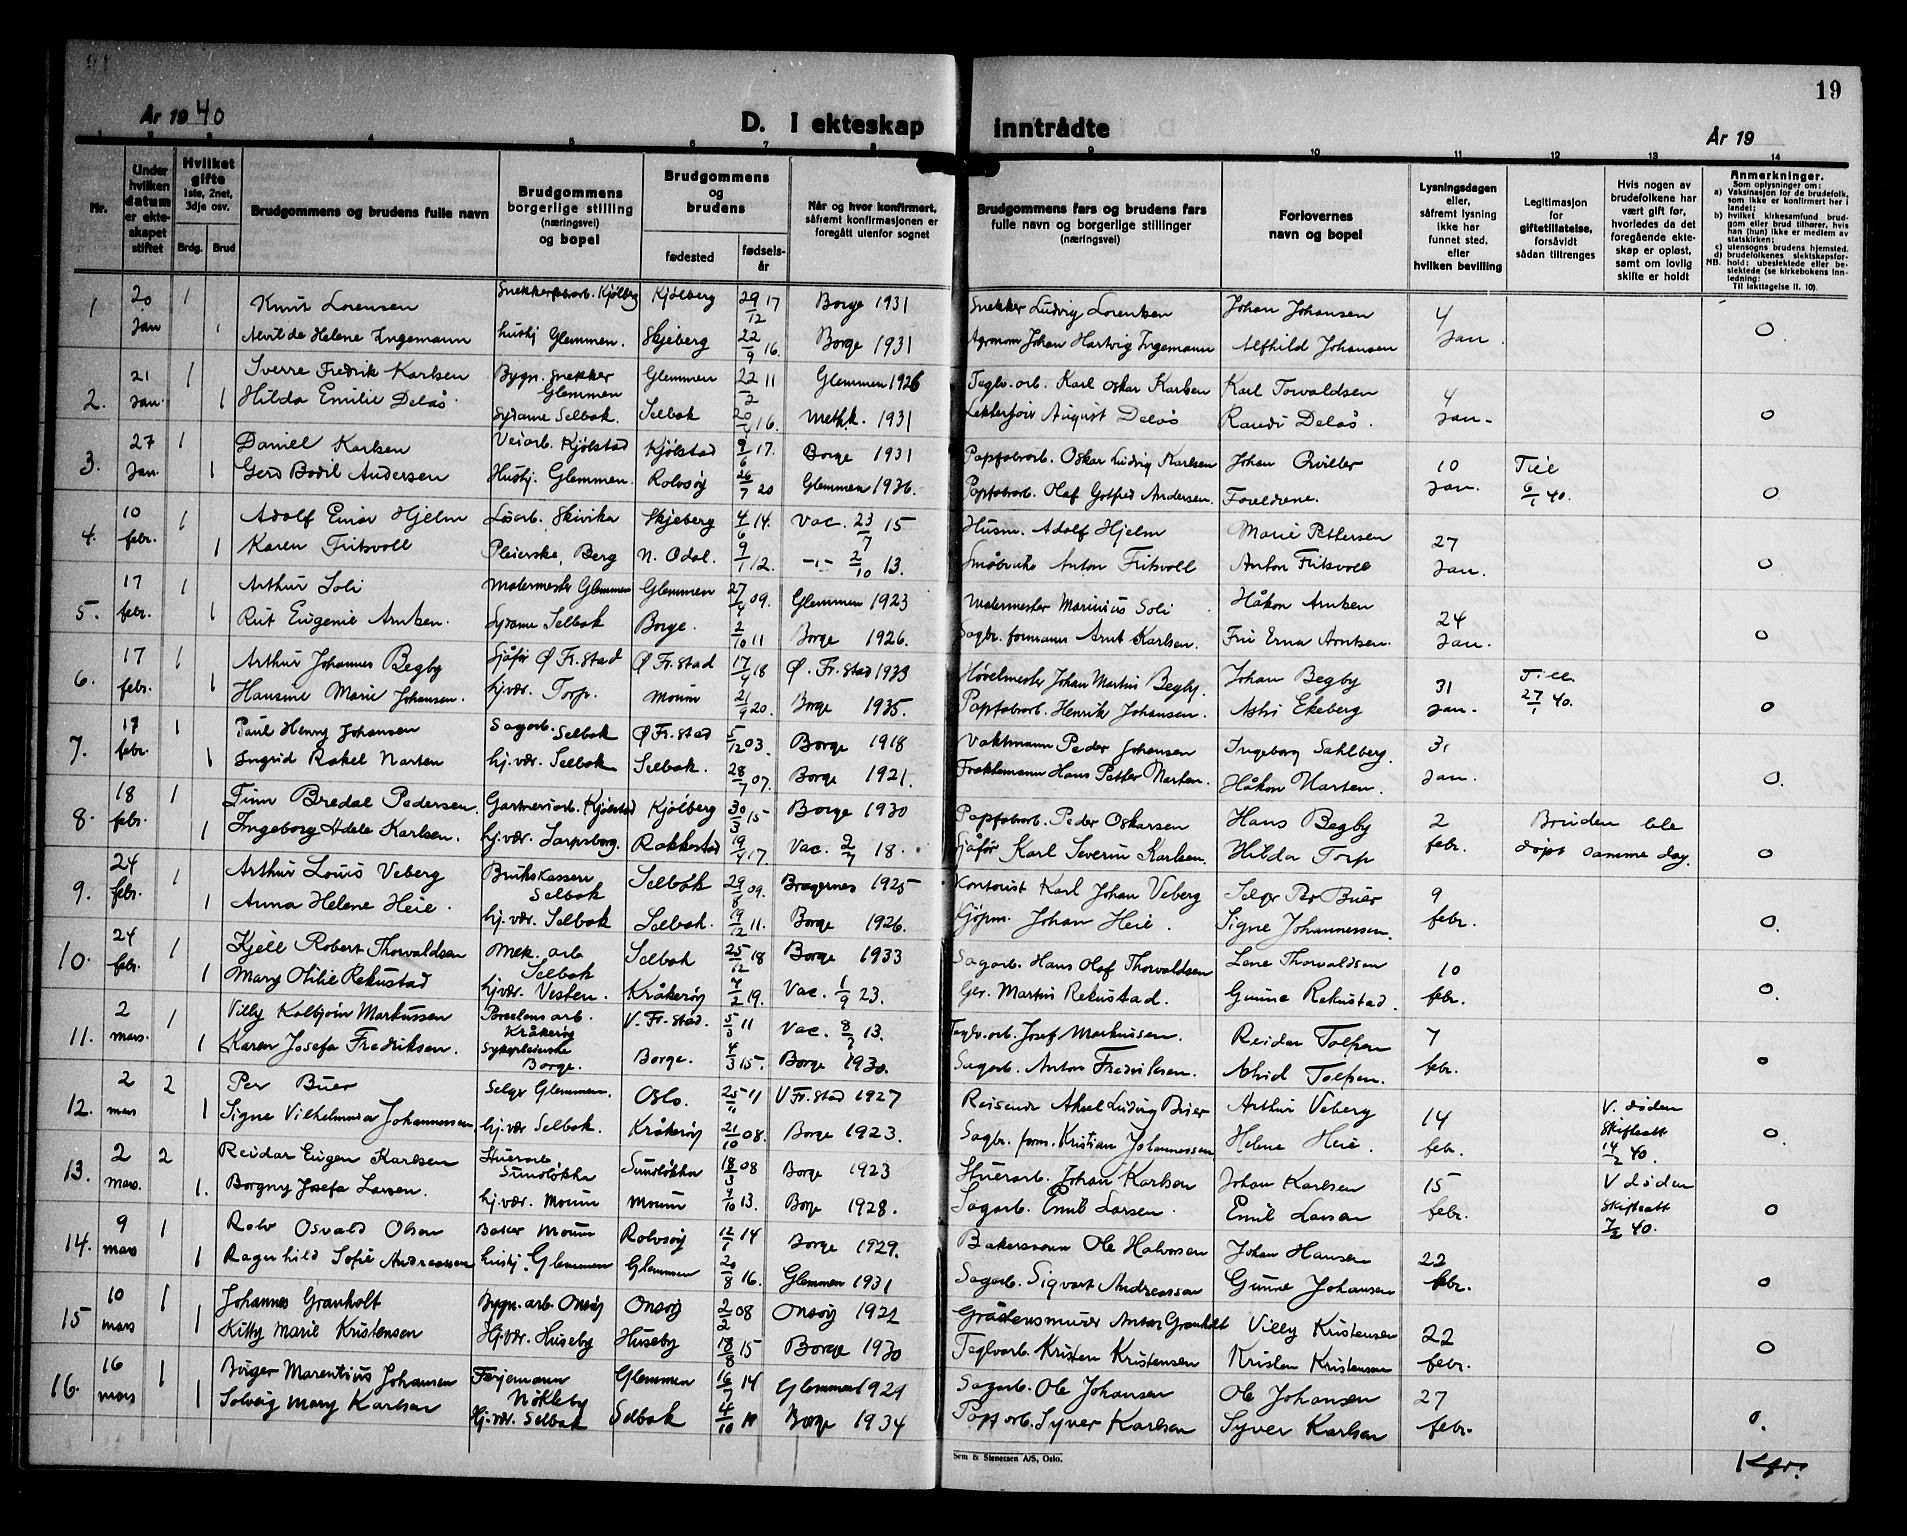 19
År 1940
D. I ekteskap inntrådte
År 19
1 2 3 4 5 6 7 8 9 10 11 12 13 14
Nr.
Under hvilken datum er ekteskapet stiftet
Hvilket gifte 1ste, 2net, 3dje osv.
Brdg. Brud
Brudgommens og brudens fulle navn
Brudgommens borgerlige stilling (næringsvei) og bopel
Brudgommens og brudens
fødested fødselsår
Når og hvor konfirmert, såfremt konfirmasjonen er foregått utenfor sognet
Brudgommens fars og brudens fars fulle navn og borgerlige stillinger (næringsvei)
Forlovernes navn og bopel
Lysningsdagen eller, såfremt lysning ikke har funnet sted, eller hvilken bevilling
Legitimasjon for giftetillatelse, forsåvidt sådan tiltrenges
Hvis nogen av brudefolkene har vært gift før, hvorledes da det foregående ekteskap er opløst, samt om lovlig skifte er holdt
Anmerkninger.
Som oplysninger om:
a) Vaksinasjon for de brudefolk, som ikke er konfirmert her i landet;
b) hvilket kirkesamfund brudgom eller brud tilhører, hvis han (hun) ikke er medlem av statskirken;
c) utensogns brudens hjemsted.
d) brudefolkenes slektskapsforhold: ubeslektede eller beslektede (se kirkebokens innledning: Til iakttagelse II. 10).
NB.
1 20 Jan 1 Knut Lorensen Kjølberg Kjølberg 29/12 17 Borge 1931 Snekker Ludvig Lorentsen Johan Johansen 4 Jan.
1 Alvilde Helene Ingemann hushj Glemmen. Skjeberg 22/9 16. Borge 1931 Agronom Johan Hartvig Ingemann Alfhild Johansen 0
2. 21 Jan. 1 Sverre Fredrik Karlsen Bygn. snekker Glemmen Glemmen 22/2 11 Glemmen 1926 Teglv. arb. Karl Oskar Karlsen Karl Torvaldsen 4 Jan.
1 Hilda Emilie Delås Sydame Selbak. Selbak 16. Methk. 1931 August Delås Randi Delås. 0
3. 27 Jan. 1 Daniel Karlsen Veiarb. Kjølstad Kjølstad 9/6 17. Borge 1931 Papfabarb. Oskar Ludvig Karlsen Johan 10 Jan. 6/1 40.
1 Gerd Bodil Andersen Hushj. Glemmen. Rolvsøy 26/7 20 Glemmen 1936. Papfabarb. Olaf Gotfred Andersen. Foreldrene. 0
4. 10 febr. 1 Adolf Einar Hjelm Løsarb. Skivika Skjeberg 4/6 14. Vac. 23/7 15 Husm. Adolf Hjelm Marie Pettersen 27 Jan.
1 Karen Fritsvoll Pleierske, Berg N. Odal. 9/1 12. -"- 2/10 13. Småbruker Anton Fritsvoll Anton Fritsvoll 0
5. 17 febr. 1 Arthur Soli Malermester Glemmen Glemmen 27/4 09. Glemmen 1923 Malermester Marinius Soli Håkon Arntsen 24 Jan.
1 Rut Eugenie Arntsen. Sydame Selbak Borge. 2/10 11 Borge 1926. Sagbr. formann Arnt Karlsen. Fru Erna Arntsen. 0
6. 17 febr. 1 Arthur Johannes Begby Sjåfør Ø Fr. stad Ø Fr. stad 17/4 18 Ø. Fr. stad 1933 Høvelmester Johan Martius Begby. Johan Begby 31 Jan. 27/1 40.
1 Hansine Marie Johansen. hj. vær. Torp. Moum 21/9 20. Borge 1935. Papfabarb. Henrik Johansen. Astri Ekeberg 0
7. 17 febr. 1 Paul Henry Johansen Sagarb. Selbak Ø Fr. stad 5/12 03. Borge 1918 Vaktmann Peder Johansen Ingeborg Sahlberg. 31 Jan.
1 Ingrid Rakel Narten hj. vær. Selbak Selbak. 28/7 07. Borge 1921. Hans Petter Narten. Håkon Narten. 0.
8. 18 febr. 1 Finn Bredal Pedersen. Gartneriarb. Kjølstad Kjølberg 30/3 15 Borge 1930 Papfabarb. Peder Oskarsen Hans Begby 2 febr. Bruden ble
1 Ingeborg Adele Karlsen. hj. vær. Sarpsborg. Rakkestad 19/4 17 Vac. 2/7 18. Sjåfør Karl Severin Karlsen. Hilda Torp døpt samme dag. 0
9. 24 febr. 1 Arthur Louis Veberg Brukskasserer Selbak Selbak 29/8 09. Bragernes 1925 Kontorist Karl Johan Veberg Selger Per Buer 9 febr.
1 Anna Helene Heie. hj. vær. Selbak Selbak. 19/12 11. Borge 1926. Kjøpm. Johan Heie. Signe Johannessen. 0.
10. 24 febr. 1 Kjell Robert Thorvaldsen Mek. arb Selbak Selbak 25/12 18 Borge 1933 Sagarb. Hans Olaf Thorvaldsen Lene Thorvaldsen 10 febr.
1 Mary Otilie Rekustad hj. vær. Vesten. Kråkerøy 4/2 19. Vac. 1/9 23. Martin Rekustad. Gunne Rekustad. 0.
11. 2 mars. 1 Villy Kolbjørn Markussen Porselensarb. Kråkerøy V. Fr. stad. 5/3 11 Vac. 13. Teglv. arb. Josef Markussen. Reidar Tolfsen 7 febr.
1 Karen Josefa Fredriksen. Sykepleierske Borge. Borge. 4/3 15. Borge 1930. Sagarb. Anton Fredriksen. Astrid Tolfsen. 0
12. 2 mars 2 Per Buer Selger Glemmen. Oslo. 11 V Fr. stad 1927 Reisende Aksel Ludvig Buer Arthur Veberg 14 febr. V. døden skifteatt 14/2 40.
1 Signe Vilhelmina Johannessen hj. vær Selbak. Kråkerøy 21/10 08. Borge 1923. Sagbr. form. Kristian Johannessen Helene Heie. 0.
13. 2 mars. 2 Reidar Eugen Karlsen Stuerarb Sundløkka Sundløkka 18/3 08 Borge 1923 Stuerarb. Johan Karlsen Johan Karlsen 15 febr. V døden skifteatt 7/2 40.
1. Borgny Josefa Larsen. hj. vær. Moum Moum 4/10 13. Borge 1928. Sagarb. Emil Larsen. Emil Larsen 0
14. 9 mars 1 Rolv Osvald Olsen Baker Moum Rolvsøy 12/1 14 Borge 1929. Bakersvenn Ole Halvorsen Johan Hansen 22 febr.
1 Ragnhild Sofie Andreassen hushj. Glemmen Glemmen 20/8 16. Glemmen 1931 Sagarb. Sigvart Andreassen Gunne Johansen 0
15 10 mars 1 Johannes Granholt Bygn. arb. Onsøy Onsøy 2/2 08 Onsøy 1922 Gråstensmurer Anton Granholt Villy Kristensen 22 febr.
1 Kitty Marie Kristensen Hj. vær. Huseby Huseby 18/8 15 Borge 1930 Teglvarb. Kristen Kristensen Kristen Kristensen 0
16. 16 mars 1 Birger Marentius Johansen Ferjemann Nøkleby Glemmen 16/7 14 Glemmen 1929 Sagarb. Ole Johansen Ole Johansen 27 febr.
1 Solveig Mary Karlsen Hj. vær. Selbak Selbak 4/10 Borge 1934 Papf arb. Syver Karlsen Syver Karlsen 0.
Sem & Stenersen A/S, Oslo.